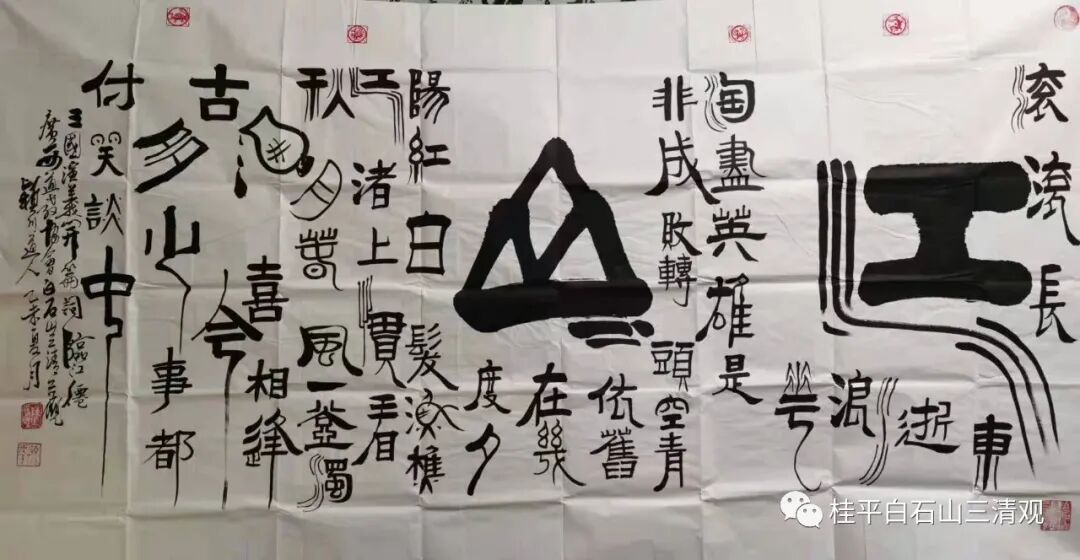 滚滚長
江東
逝
浪
花
淘盡英雄是
非成敗轉頭空青
山
依舊
在幾
度夕
陽紅白髮漁樵
江渚上慣看
秋月春風一壺濁
酒喜相逢
古今
多少事都
付笑談中
三國演義開篇詞臨江僊
廣西道教協會白石山三清
道人乙未夏月
桂平白石山三清观